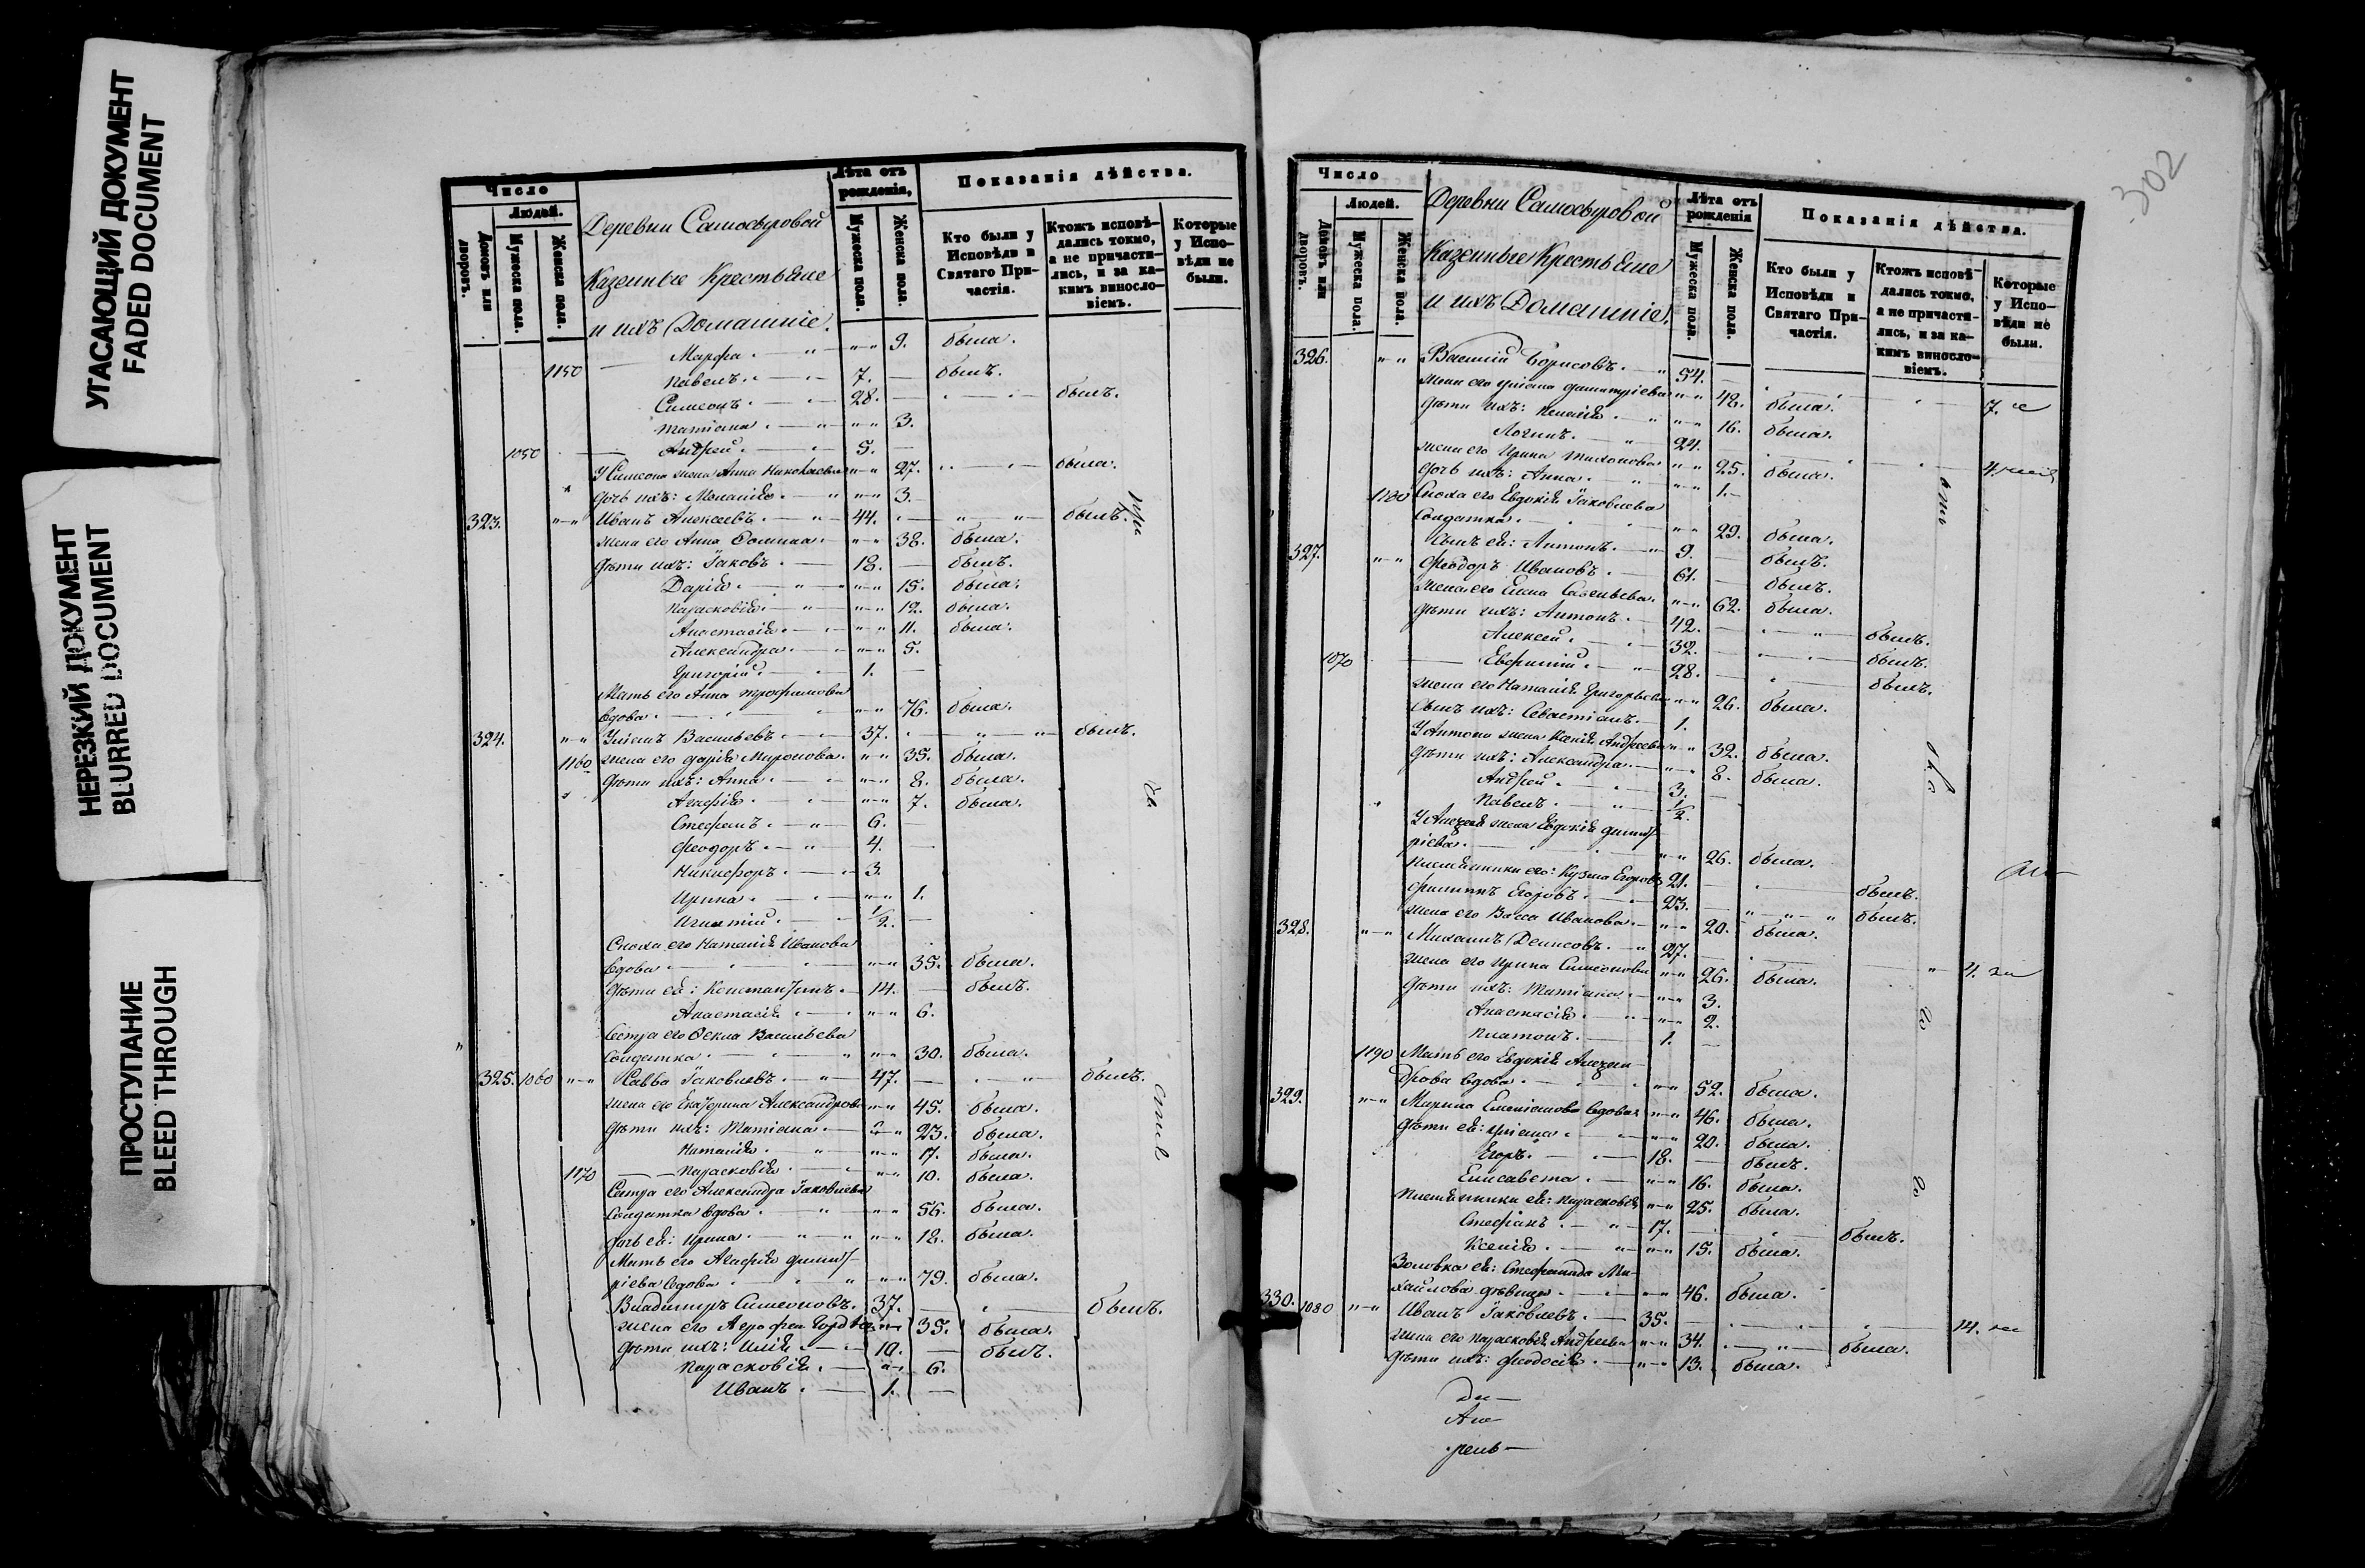 УГАСАЮЩИЙ ДОКУМЕНТ
FADED DOCUMENT
НЕРЕЗКИЙ ДОКУМЕНТ
BLURRED DOCUMENT
ПРОСТУПАНИЕ
BLEED THROUGH
Число
Людей.
Домовъ или дворовъ.
Мужеска пола.
Женска пола.
Деревни Самосыровой
Казенные Крестьяне
и ихъ Домашніе.
Лѣта отъ рожденія,
Мужеска пола.
Женска пола.
Показанія дѣйства.
Кто были у Исповѣди и Святаго Причастія.
Ктожъ исповѣдались токмо, а не причастились, и за какимъ винословіемъ.
Которые у Исповѣди не были.
Марфа 9. была.
1150 Павелъ. 7. былъ.
Симеонъ. 28. былъ.
Татіана 3.
1050 Андрей 5.
У Симеона жена Анна Николаева 27. была.
дочь ихъ: Меланія 3.
323. Иванъ Алексеевъ. 44. былъ.
жена его Анна Фомина 38. была.
дѣти ихъ: Іаковъ 18. былъ.
Дарія 15. была.
Параскевія 12. была.
Анастасія 11. была.
Александра 5.
Григорій 1.
Мать его Анна Трофимова
вдова 76. была.
324. Уліанъ Васильевъ 37. былъ.
1160 жена его Дарія Миронова 35. была.
дѣти ихъ: Анна 8. была.
Агафія 7. была.
Стефанъ 6.
Феодоръ 4.
Никифоръ 3.
Ирина 1.
Игнатій 1/2.
Сноха его Наталія Иванова
вдова 35. была.
дѣти ея: Константинъ 14. былъ.
Анастасія 6.
Сестра его Фекла Васильева
солдатка 30. была.
325. 1060 Савва Іаковлевъ 47. былъ.
жена его Екатерина Александрова 45. была.
дѣти ихъ: Татіана 23. была.
Наталія 17. была.
1170 Парасковія 10. была.
Сестра его Александра Іаковлева
солдатка вдова 56. была.
дочь ея: Ирина 18. была.
Мать его Агафія Димит-
ріева вдова 79. была.
Владимиръ Симеоновъ. 37. былъ.
жена его 35. была.
дѣти ихъ: Илія 10. былъ.
Парасковія 6.
Иванъ 1.
302
Число
Людей.
Домовъ или дворовъ.
Мужеска пола.
Женска пола.
Деревни Самосыровой
Казенные Крестьяне
и ихъ Домашніе.
Лѣта отъ рожденія
Мужеска пола.
Женска пола.
Показанія дѣйства.
Кто были у Исповѣди и Святаго Причастія.
Ктожъ исповѣдались токмо, а не причастились, и за какимъ винословіемъ.
Которые у Исповѣди не были.
326. Василій Борисовъ. 54. 7.
жена его Уліана Димитріева 48. была.
дѣти ихъ: Пелагія 16. была.
Логинъ. 24. 4.
жена его Ирина Тихонова 25. была.
дочь ихъ: Анна 1.
1180 Сноха его Евдокія Іаковлева
солдатка 29. была.
Сынъ ея: Антонъ 9. былъ.
327. Феодоръ Ивановъ 61. былъ.
жена его Елена Савельева 62. была.
дѣти ихъ: Антонъ 42. былъ.
Алексей 32. былъ.
1070 Евфимій 28. былъ.
жена его Наталія Григорьева 26. была.
сынъ ихъ: Севастіанъ 1.
У Антона жена Ксенія Андреева 32. была.
дѣти ихъ: Александра 8. была.
Андрей 3.
Павелъ 1/2.
У Алексея жена Евдокія Димит-
ріева 26. была.
Племянники его: Кузма Егоровъ 21. былъ.
Филиппъ Егоровъ 23. былъ.
жена его Васса Иванова 20. была.
328. Михаилъ Денисовъ 27. 4.
жена его Ирина Симеонова 26. была.
дѣти ихъ: Татіана 3.
Анастасія 2.
Платонъ 1.
1190 Мать его Евдокія Алексан-
дрова вдова 52. была.
329. Марина Емеліанова вдова 46. была.
дѣти ея: Уліана 20. была.
Егоръ 18. былъ.
Елисавета 16. была.
Племянники ея: Парасковія 25. была.
Стефанъ 17. былъ.
Ксенія 15. была.
Золовка ея: Стефанида Ми-
хайлова дѣвица 46. была.
330. 1080 Иванъ Іаковлевъ 35. 14.
жена его Парасковія Андреева 34. была.
дѣти ихъ: Феодосія 13. была.